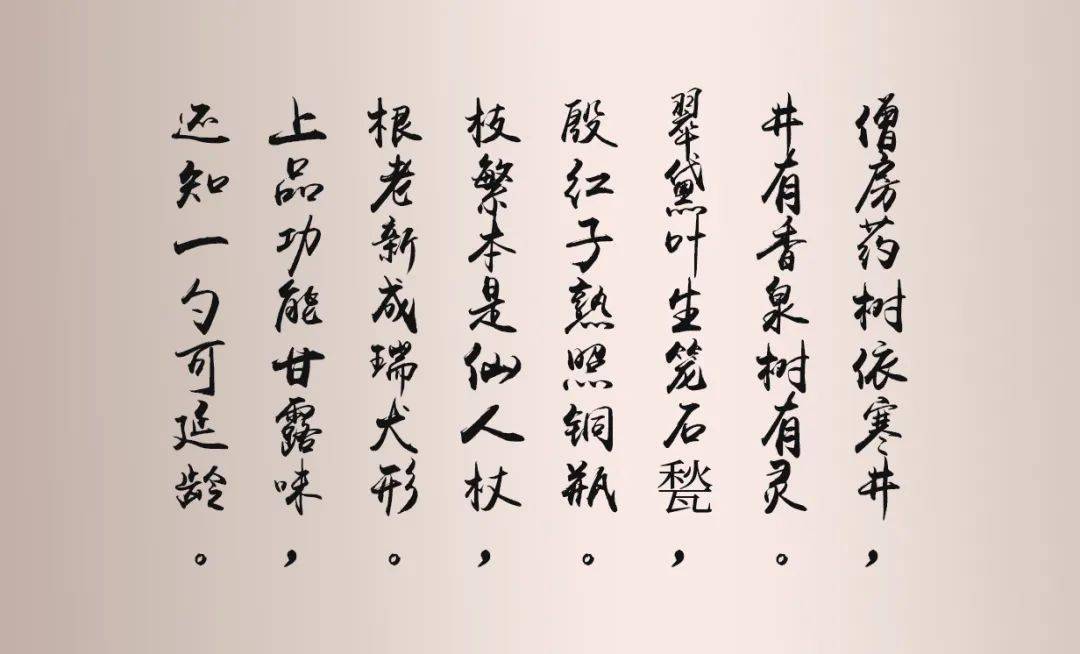 僧房药树依寒井，
井有香泉树有灵。
翠黛叶生笼石甃，
殷红子熟照铜瓶。
枝繁本是仙人杖，
根老新成瑞犬形。
上品功能甘露味，
还知一勺可延龄。